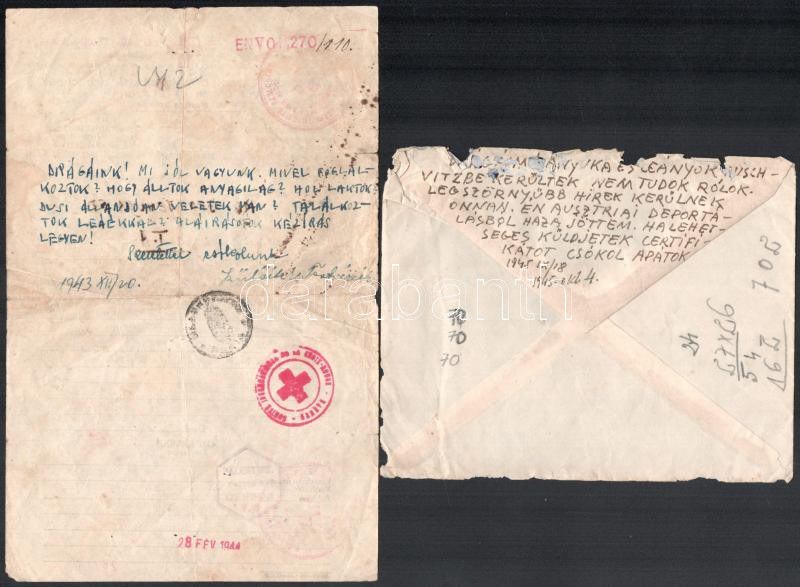 ENVOI 270/110.
DRÁGÁINK! MI JÓL VAGYUNK. MIVEL FOGLAL-
KOZTOK? HOGY ÁLLTOK ANYAGILAG? HOL LAKTOK?
DUSI ÁLLANDÓAN VELETEK VAN? TALÁLKOZ-
TOK LEÁÉKKAL? ALÁIRÁSOTOK KÉZIRÁS
LEGYEN!
Szeretettel csókolunk
1943 XII/20.
COMITÉ INTERNATIONAL DE LA CROIX-ROUGE
28 FEV 1944
ÉS LEÁNYOK AUSCH-
VITZBE KERÜLTEK NEM TUDOK RÓLOK.
LEGSZÖRNYÜBB HÍREK KERÜLNEK
ONNAN. ÉN AUSZTRIAI DEPORTÁ-
LÁSBÓL HAZA JÖTTEM. HA LEHET-
SÉGES KÜLDJETEK CERTIFI-
KÁTOT CSÓKOL APATOK
1945 18
1945 okt 4.
70
70
70
24
54
162
702
darabanth